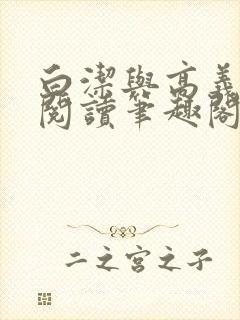 白潔與高義
閱讀筆趣閣
二之宮之子